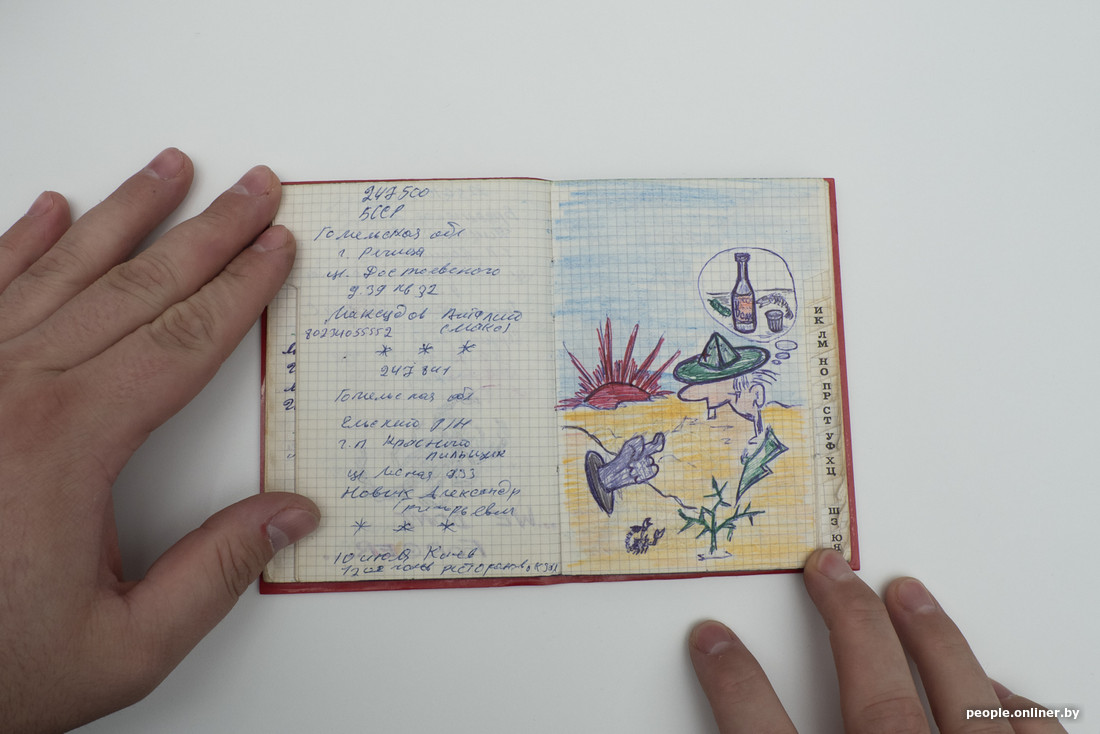 247500
БССР
Гомельская обл
г. Речица
ул. Достоевского
д. 39 кв 32
Анатолий
80234055552
* * *
247841
Гомельская обл
Ельский р/н
г.п. Красного
ул. Лесная д33
Новик Александр
* * *
10 июля Киев
часов ресторан
ИК
ЛМ
НО
ПР
СТ
УФ
ХЦ
ШЗ
ЮЯ
people.onliner.by